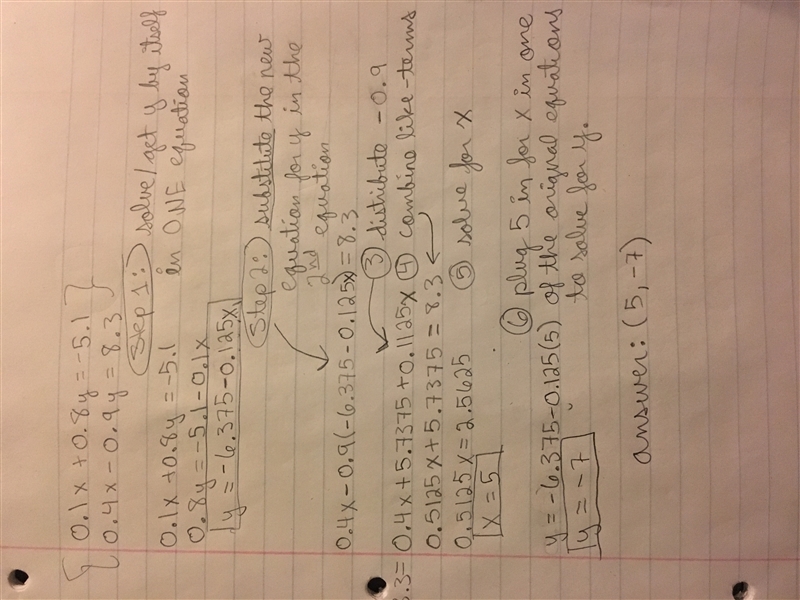 { 0.1x + 0.8y = -5.1 }
0.4x - 0.9y = 8.3
Step 1: solve/get y by itself
in ONE equation
0.1x + 0.8y = -5.1
0.8y = -5.1 - 0.1x
y = -6.375 - 0.125x
Step 2: substitute the new
equation for y in the
2nd equation
0.4x - 0.9(-6.375 - 0.125x) = 8.3
③ distribute -0.9
8.3 = 0.4x + 5.7375 + 0.1125x ④ combine like-terms
0.5125x + 5.7375 = 8.3
0.5125x = 2.5625 ⑤ solve for x
x = 5
⑥ plug 5 in for x in one
y = -6.375 - 0.125(5) of the original equations
y = -7 to solve for y.
answer: (5, -7)